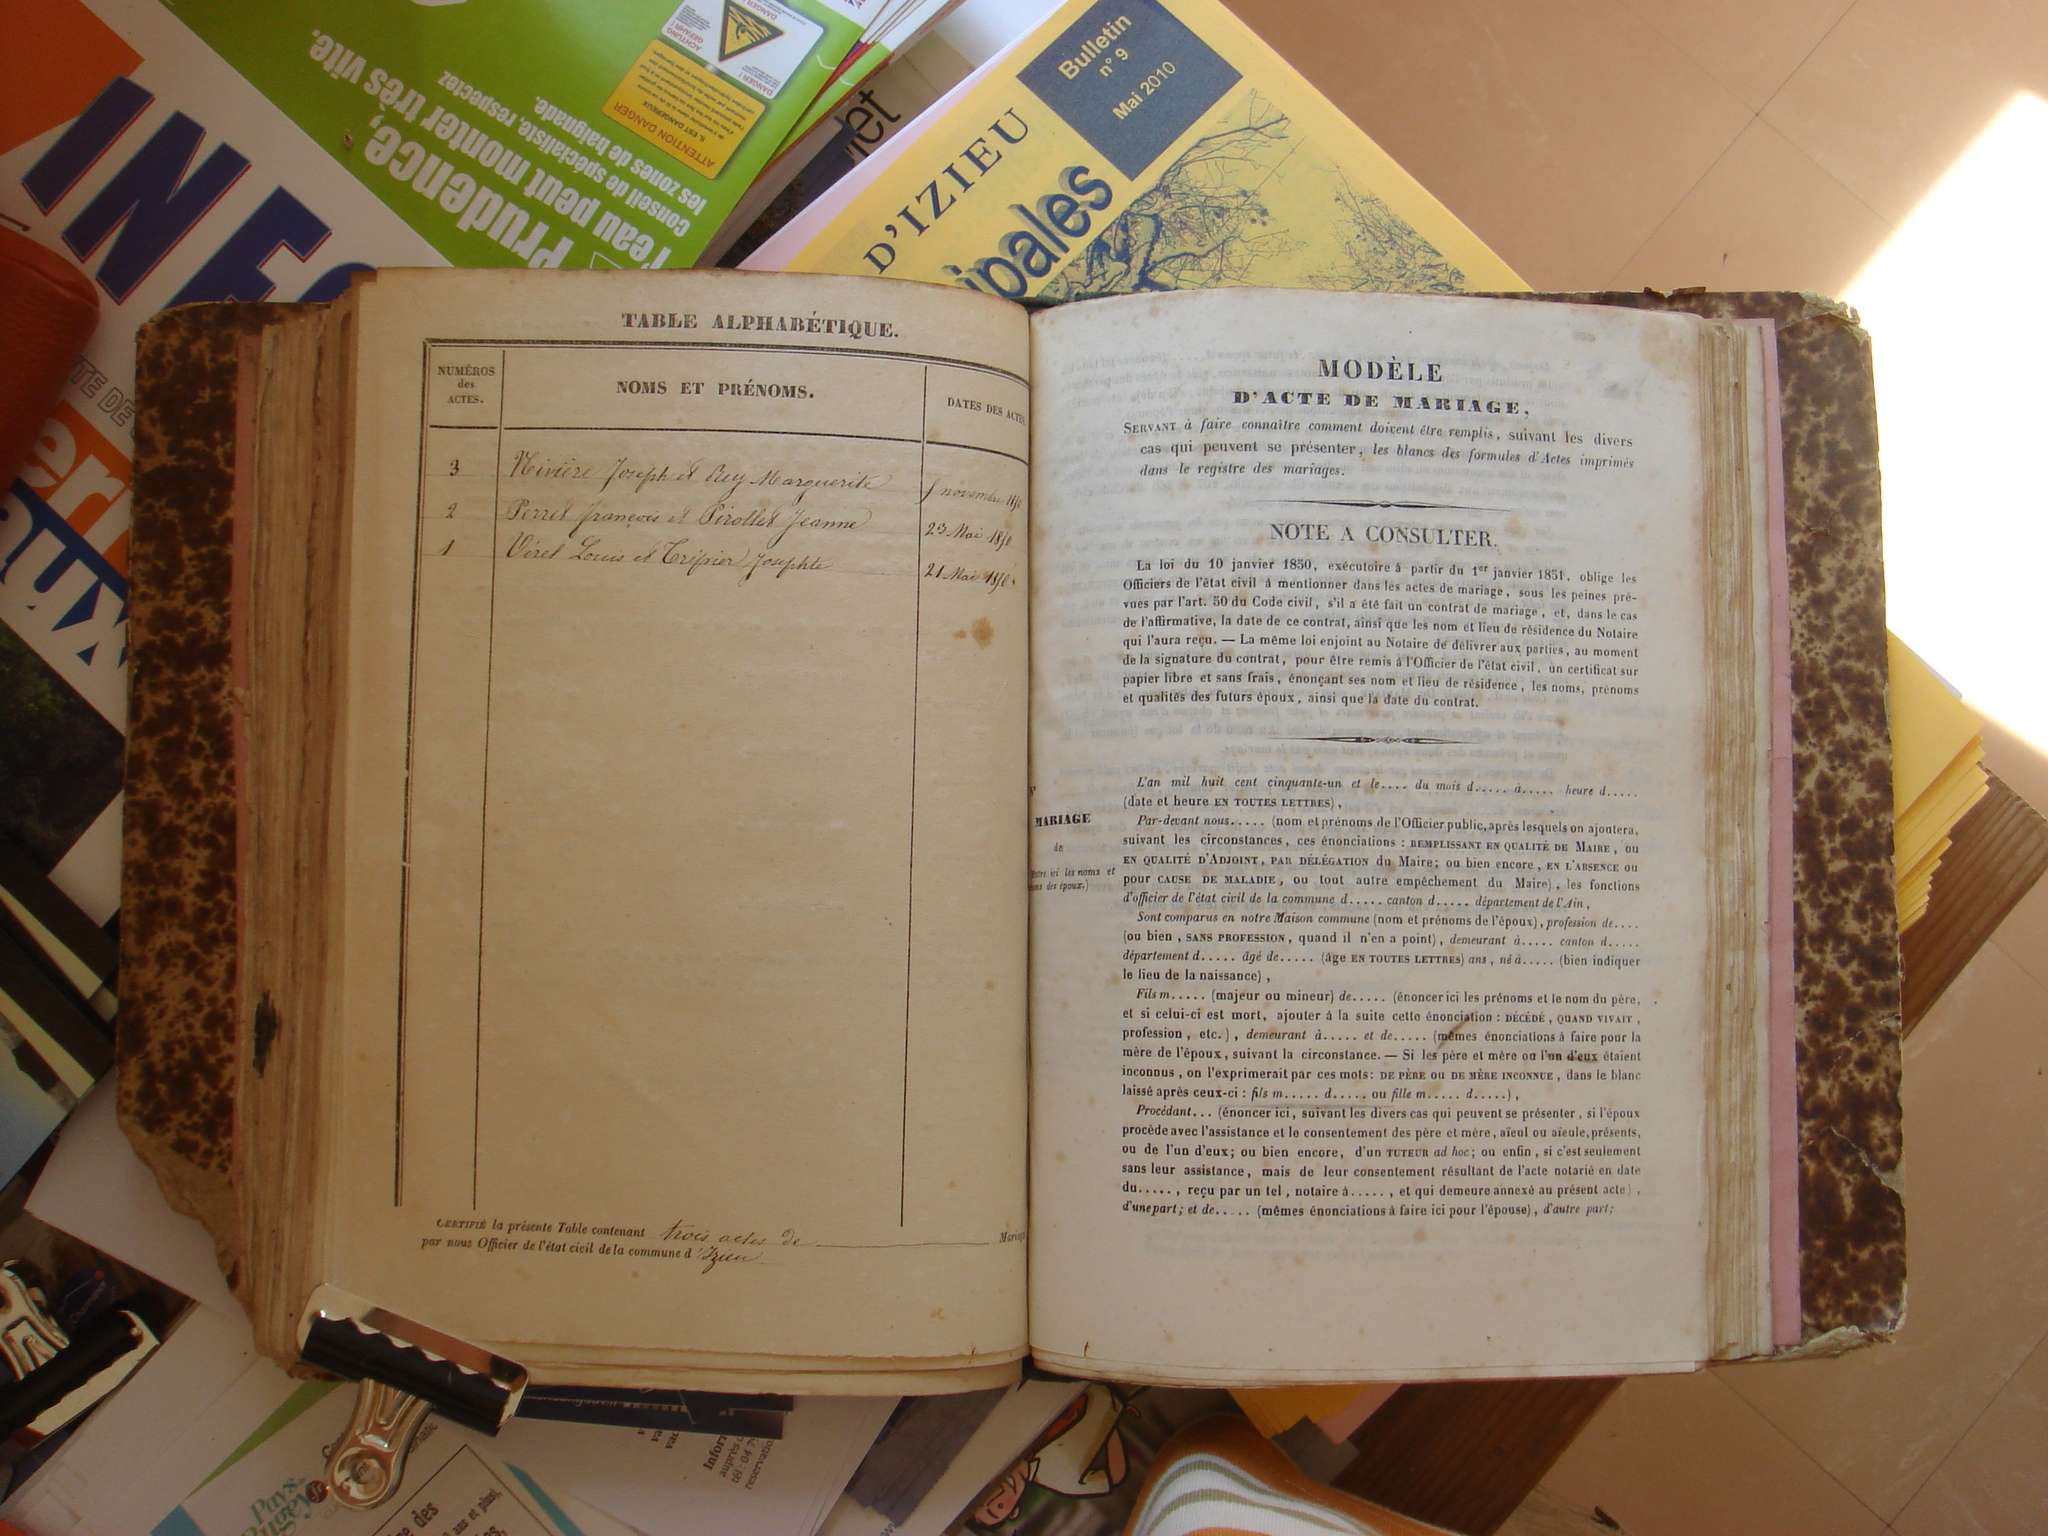 INFO
Prudence,
l'eau peut monter très vite.
conseil de spécialiste, respectez
les zones de baignade.
ATTENTION DANGER
IL EST DANGEREUX
DANGER !
ACHTUNG
GEFAHR !
Bulletin
n° 9
Mai 2010
D'IZIEU
ipales
let
TABLE ALPHABÉTIQUE.
NUMÉROS
des
ACTES.
NOMS ET PRÉNOMS.
DATES DES ACTES
3 Nivière Joseph et Rey Marguerite novembre
2 Perret françois et Pirollet Jeanne 23 Mai 1850
1 Véret Louis et Tripier Josephte 21 Mai 1850
CERTIFIÉ la présente Table contenant trois actes de Mariage
par nous Officier de l'état civil de la commune d'Izieu
MODÈLE
D'ACTE DE MARIAGE,
SERVANT à faire connaître comment doivent être remplis, suivant les divers
cas qui peuvent se présenter, les blancs des formules d'Actes imprimés
dans le registre des mariages.
NOTE A CONSULTER.
La loi du 10 janvier 1850, exécutoire à partir du 1er janvier 1851, oblige les
Officiers de l'état civil à mentionner dans les actes de mariage, sous les peines pré-
vues par l'art. 50 du Code civil, s'il a été fait un contrat de mariage, et, dans le cas
de l'affirmative, la date de ce contrat, ainsi que les nom et lieu de résidence du Notaire
qui l'aura reçu. — La même loi enjoint au Notaire de délivrer aux parties, au moment
de la signature du contrat, pour être remis à l'Officier de l'état civil, un certificat sur
papier libre et sans frais, énonçant ses nom et lieu de résidence, les noms, prénoms
et qualités des futurs époux, ainsi que la date du contrat.
MARIAGE
de
ici les noms et
des époux.)
L'an mil huit cent cinquante-un et le.... du mois d..... à..... heure d.....
(date et heure EN TOUTES LETTRES),
Par-devant nous..... (nom et prénoms de l'Officier public, après lesquels on ajoutera,
suivant les circonstances, ces énonciations : REMPLISSANT EN QUALITÉ DE MAIRE, ou
EN QUALITÉ D'ADJOINT, PAR DÉLÉGATION du Maire; ou bien encore, EN L'ABSENCE ou
pour CAUSE DE MALADIE, ou tout autre empêchement du Maire), les fonctions
d'officier de l'état civil de la commune d..... canton d..... département de l'Ain,
Sont comparus en notre Maison commune (nom et prénoms de l'époux), profession de....
(ou bien, SANS PROFESSION, quand il n'en a point), demeurant à..... canton d.....
département d..... âgé de..... (âge EN TOUTES LETTRES) ans, né à..... (bien indiquer
le lieu de la naissance),
Fils m..... (majeur ou mineur) de..... (énoncer ici les prénoms et le nom du père,
et si celui-ci est mort, ajouter à la suite cette énonciation : DÉCÉDÉ, QUAND VIVAIT,
profession, etc.), demeurant à..... et de..... (mêmes énonciations à faire pour la
mère de l'époux, suivant la circonstance. — Si les père et mère ou l'un d'eux étaient
inconnus, on l'exprimerait par ces mots : DE PÈRE OU DE MÈRE INCONNUE, dans le blanc
laissé après ceux-ci : fils m..... d..... ou fille m..... d.....),
Procédant... (énoncer ici, suivant les divers cas qui peuvent se présenter, si l'époux
procède avec l'assistance et le consentement des père et mère, aïeul ou aïeule, présents,
ou de l'un d'eux; ou bien encore, d'un TUTEUR ad hoc; ou enfin, si c'est seulement
sans leur assistance, mais de leur consentement résultant de l'acte notarié en date
du....., reçu par un tel, notaire à....., et qui demeure annexé au présent acte),
d'une part; et de..... (mêmes énonciations à faire ici pour l'épouse), d'autre part;
Pays